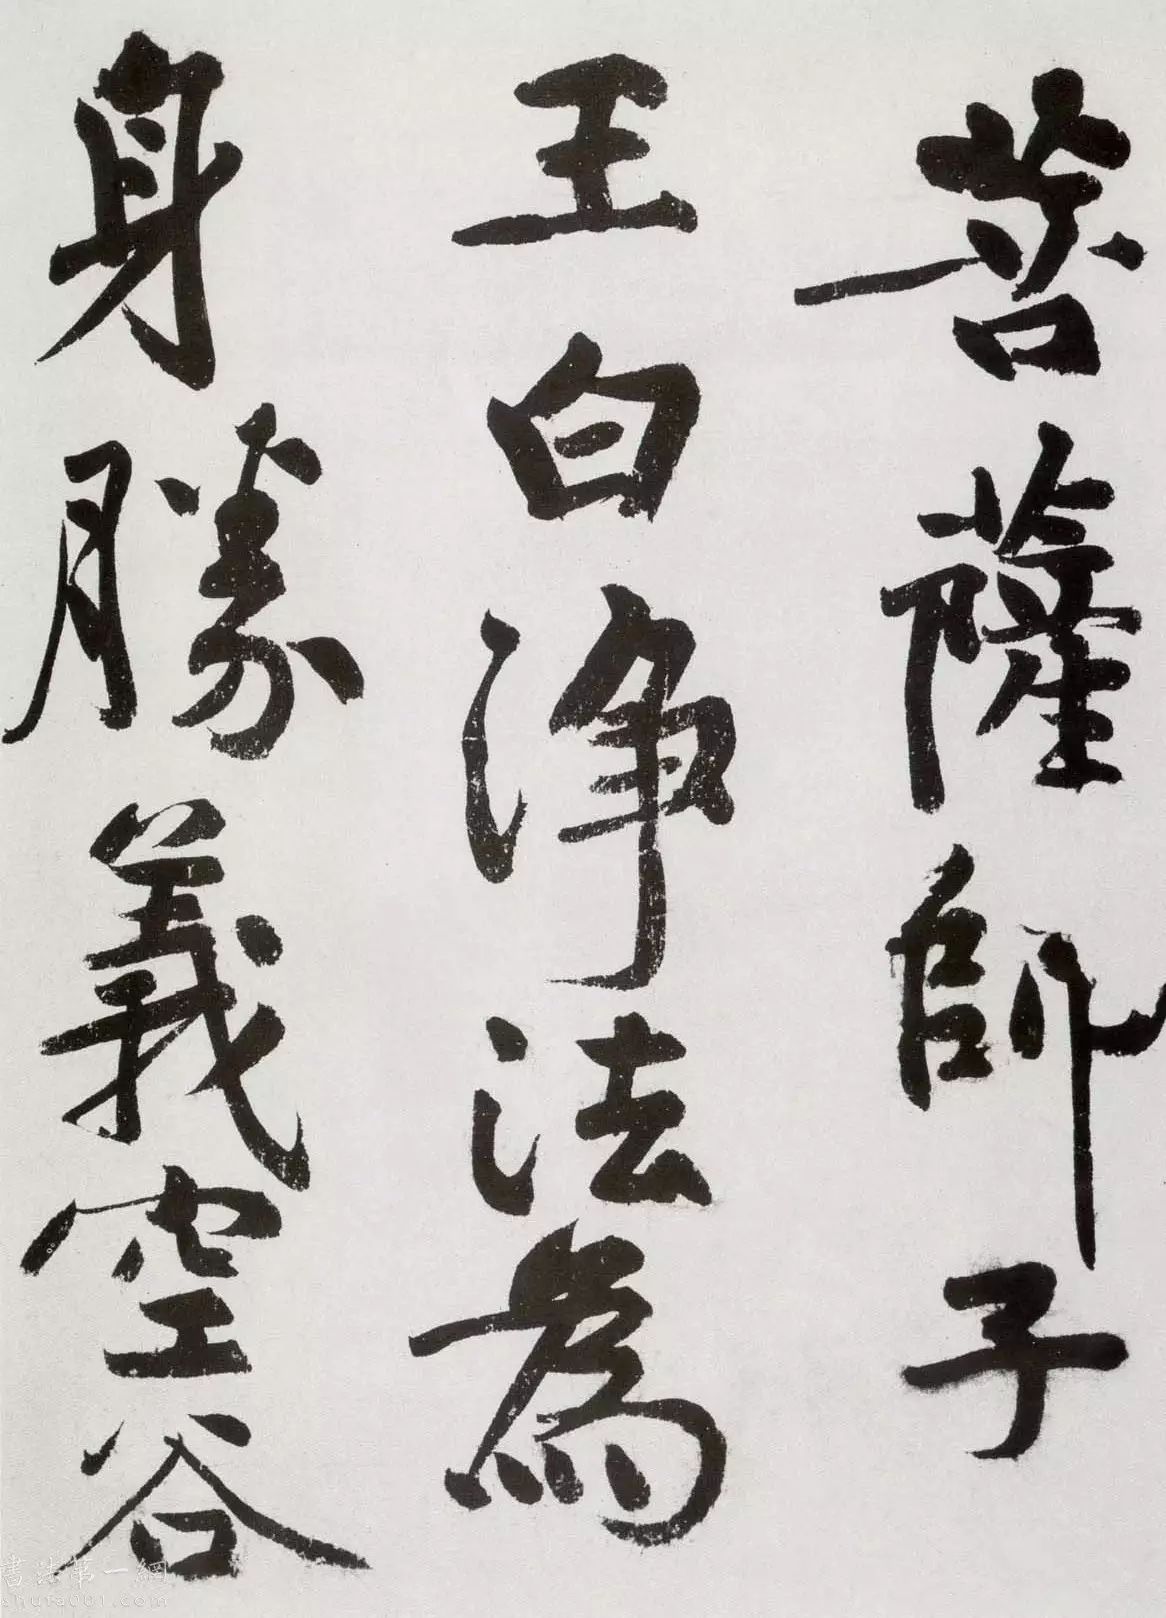 菩薩師子
王白淨法為
身勝義空谷
書法第一網
shufa001.com